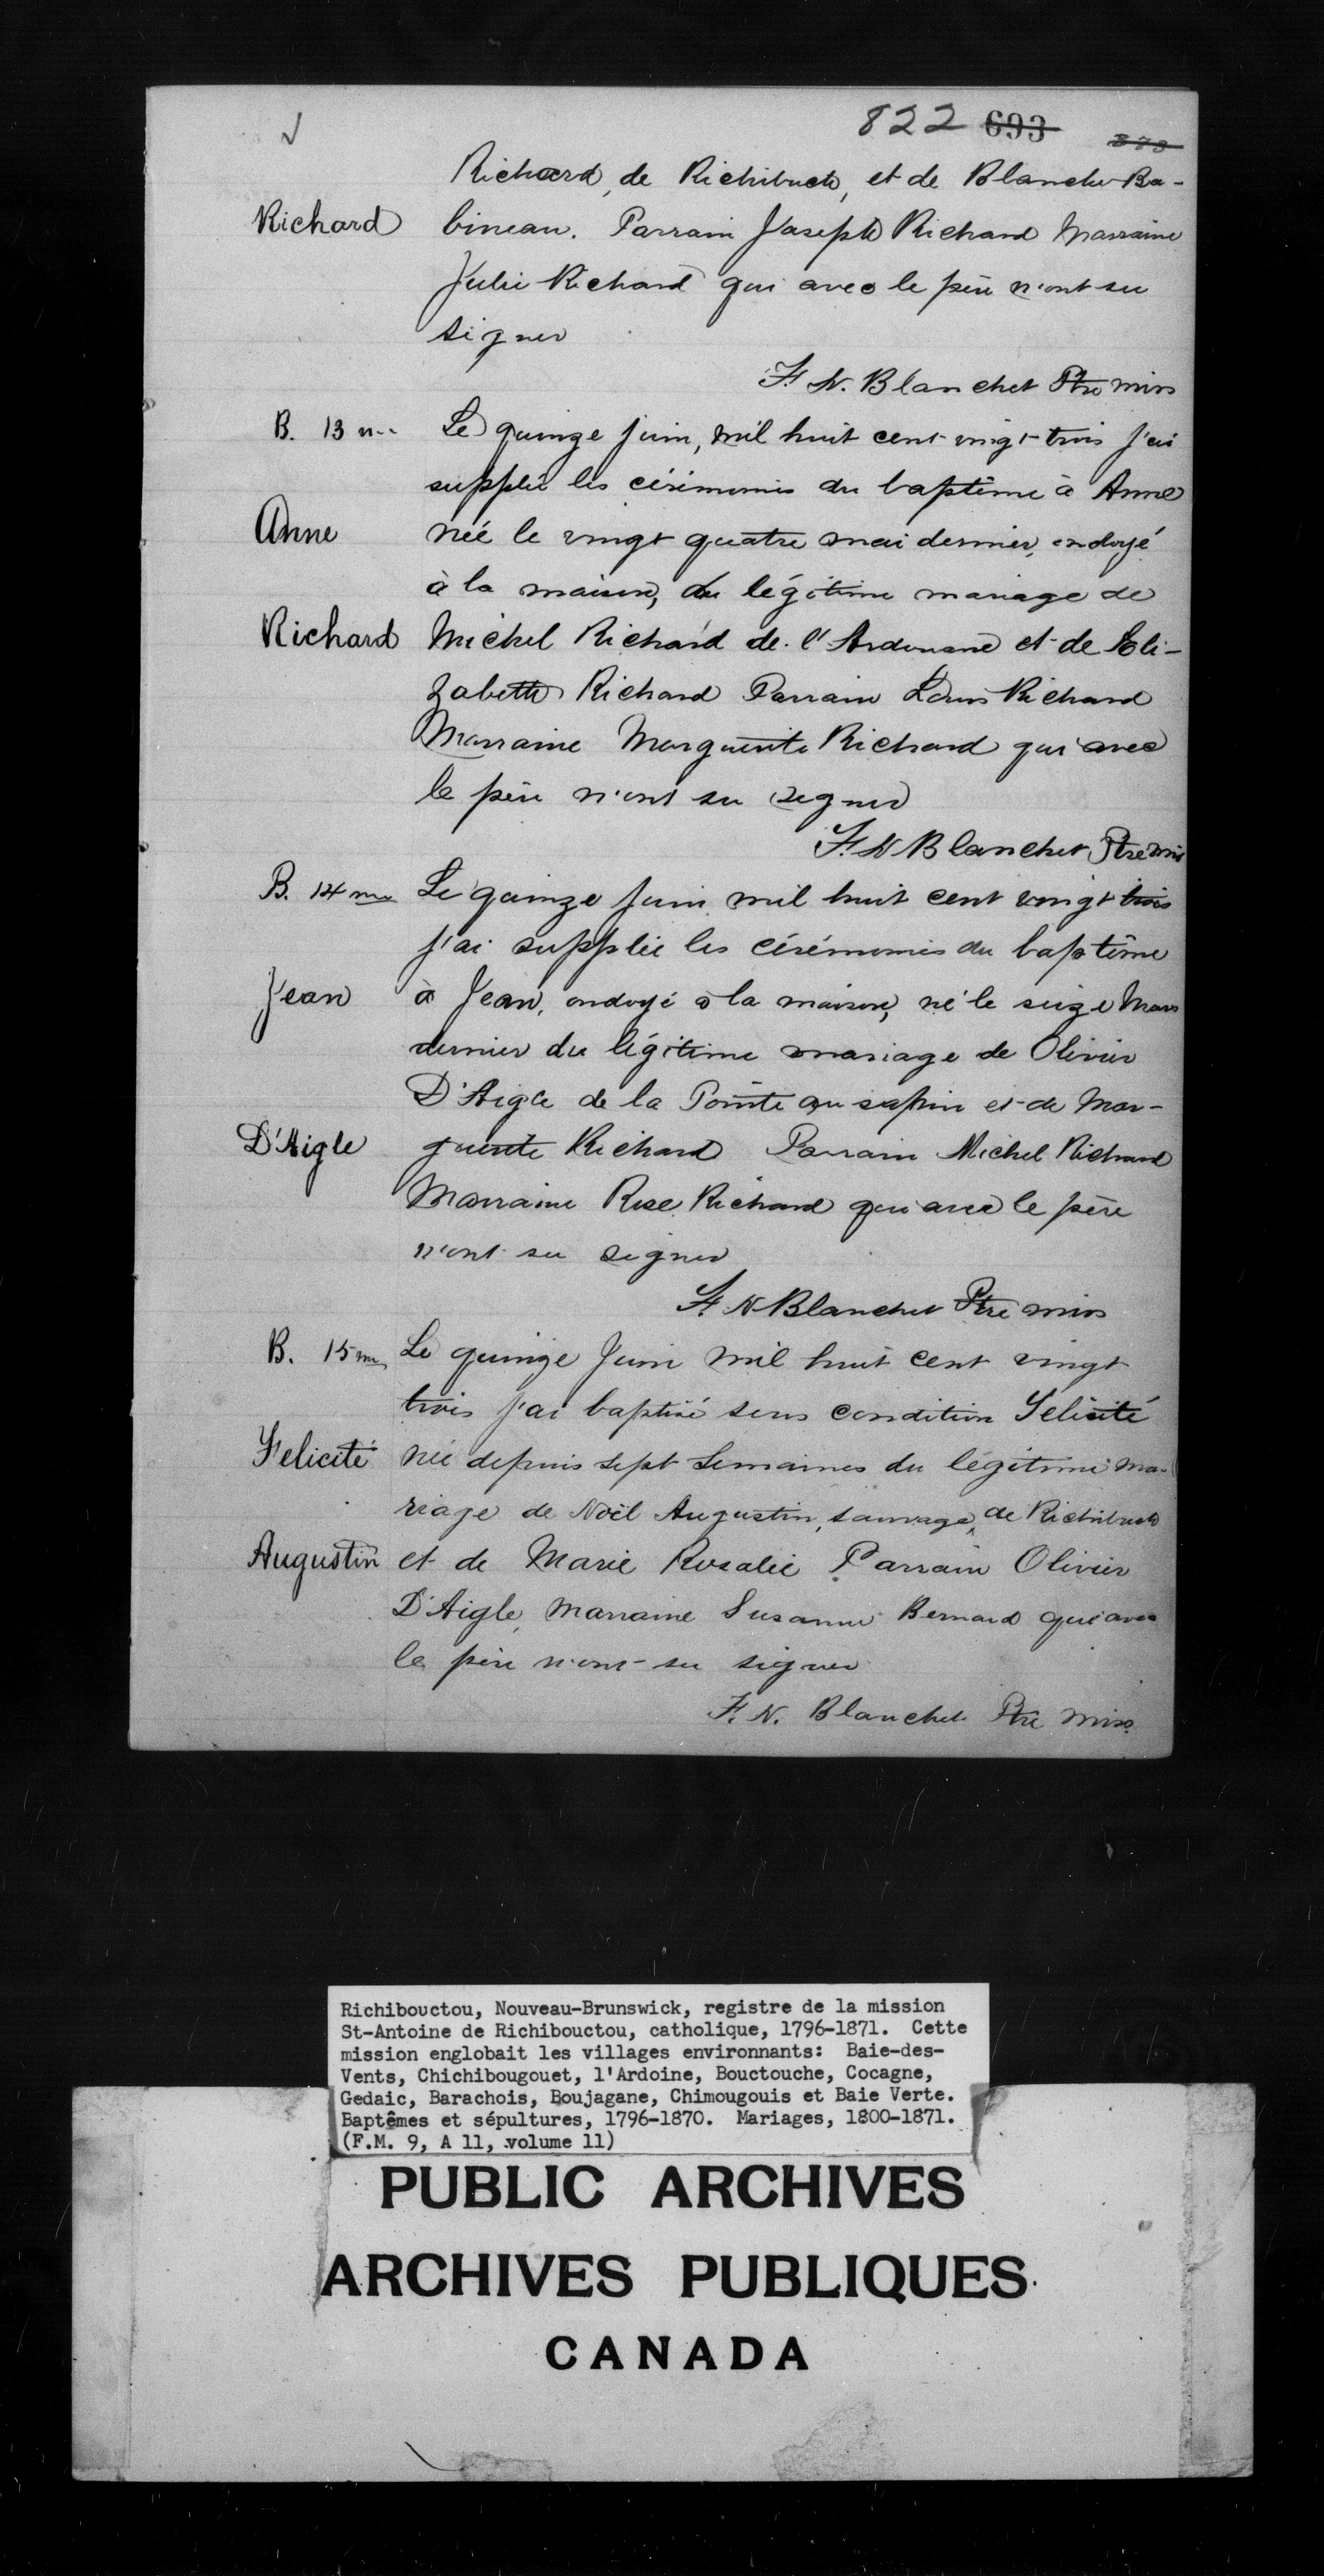 822 693
Richard, de Richibucto, et de Blanche Ba-
Richard bineau. Parrain Joseph Richard Marraine
Julie Richard qui avec le père n'ont su
signer
F. N. Blanchet Ptre miss
B. 13 me Le quinze juin, mil huit cent vingt-trois j'ai
supplée les cérémonies du baptême à Anne
Anne née le vingt quatre mai dernier, ondoyé
à la maison, du légitime mariage de
Richard Michel Richard de l'Ardouane et de Eli-
zabeth Richard Parrain Louis Richard
Marraine Marguerite Richard qui avec
le père n'ont su signer
F. N Blanchet Ptre mis
B. 14 me Le quinze Juin mil huit cent vingt trois
j'ai supplée les cérémonies du baptême
Jean à Jean, ondoyé à la maison, né le seize Mars
dernier du légitime mariage de Olivier
D'Aigle de la Pointe au sapin et de Mar-
D'Aigle guerite Richard Parrain Michel Richard
Marraine Rose Richard qui avec le père
n'ont su signer
F. N Blanchet Ptre miss
B. 15 me Le quinze Juin mil huit cent vingt
trois j'ai baptisé sous condition Felicité
Felicité née depuis sept semaines du légitime ma-
riage de Noël Augustin, sauvage, de Richibucto
Augustin et de Marie Rosalie Parrain Olivier
D'Aigle, Marraine Susanne Bernard qui avec
le père n'ont su signer
F. N. Blanchet Ptre Miss.
Richibouctou, Nouveau-Brunswick, registre de la mission
St-Antoine de Richibouctou, catholique, 1796-1871. Cette
mission englobait les villages environnants: Baie-des-
Vents, Chichibougouet, l'Ardoine, Bouctouche, Cocagne,
Gedaic, Barachois, Boujagane, Chimougouis et Baie Verte.
Baptêmes et sépultures, 1796-1870. Mariages, 1800-1871.
(F.M. 9, A 11, volume 11)
PUBLIC ARCHIVES
ARCHIVES PUBLIQUES
CANADA